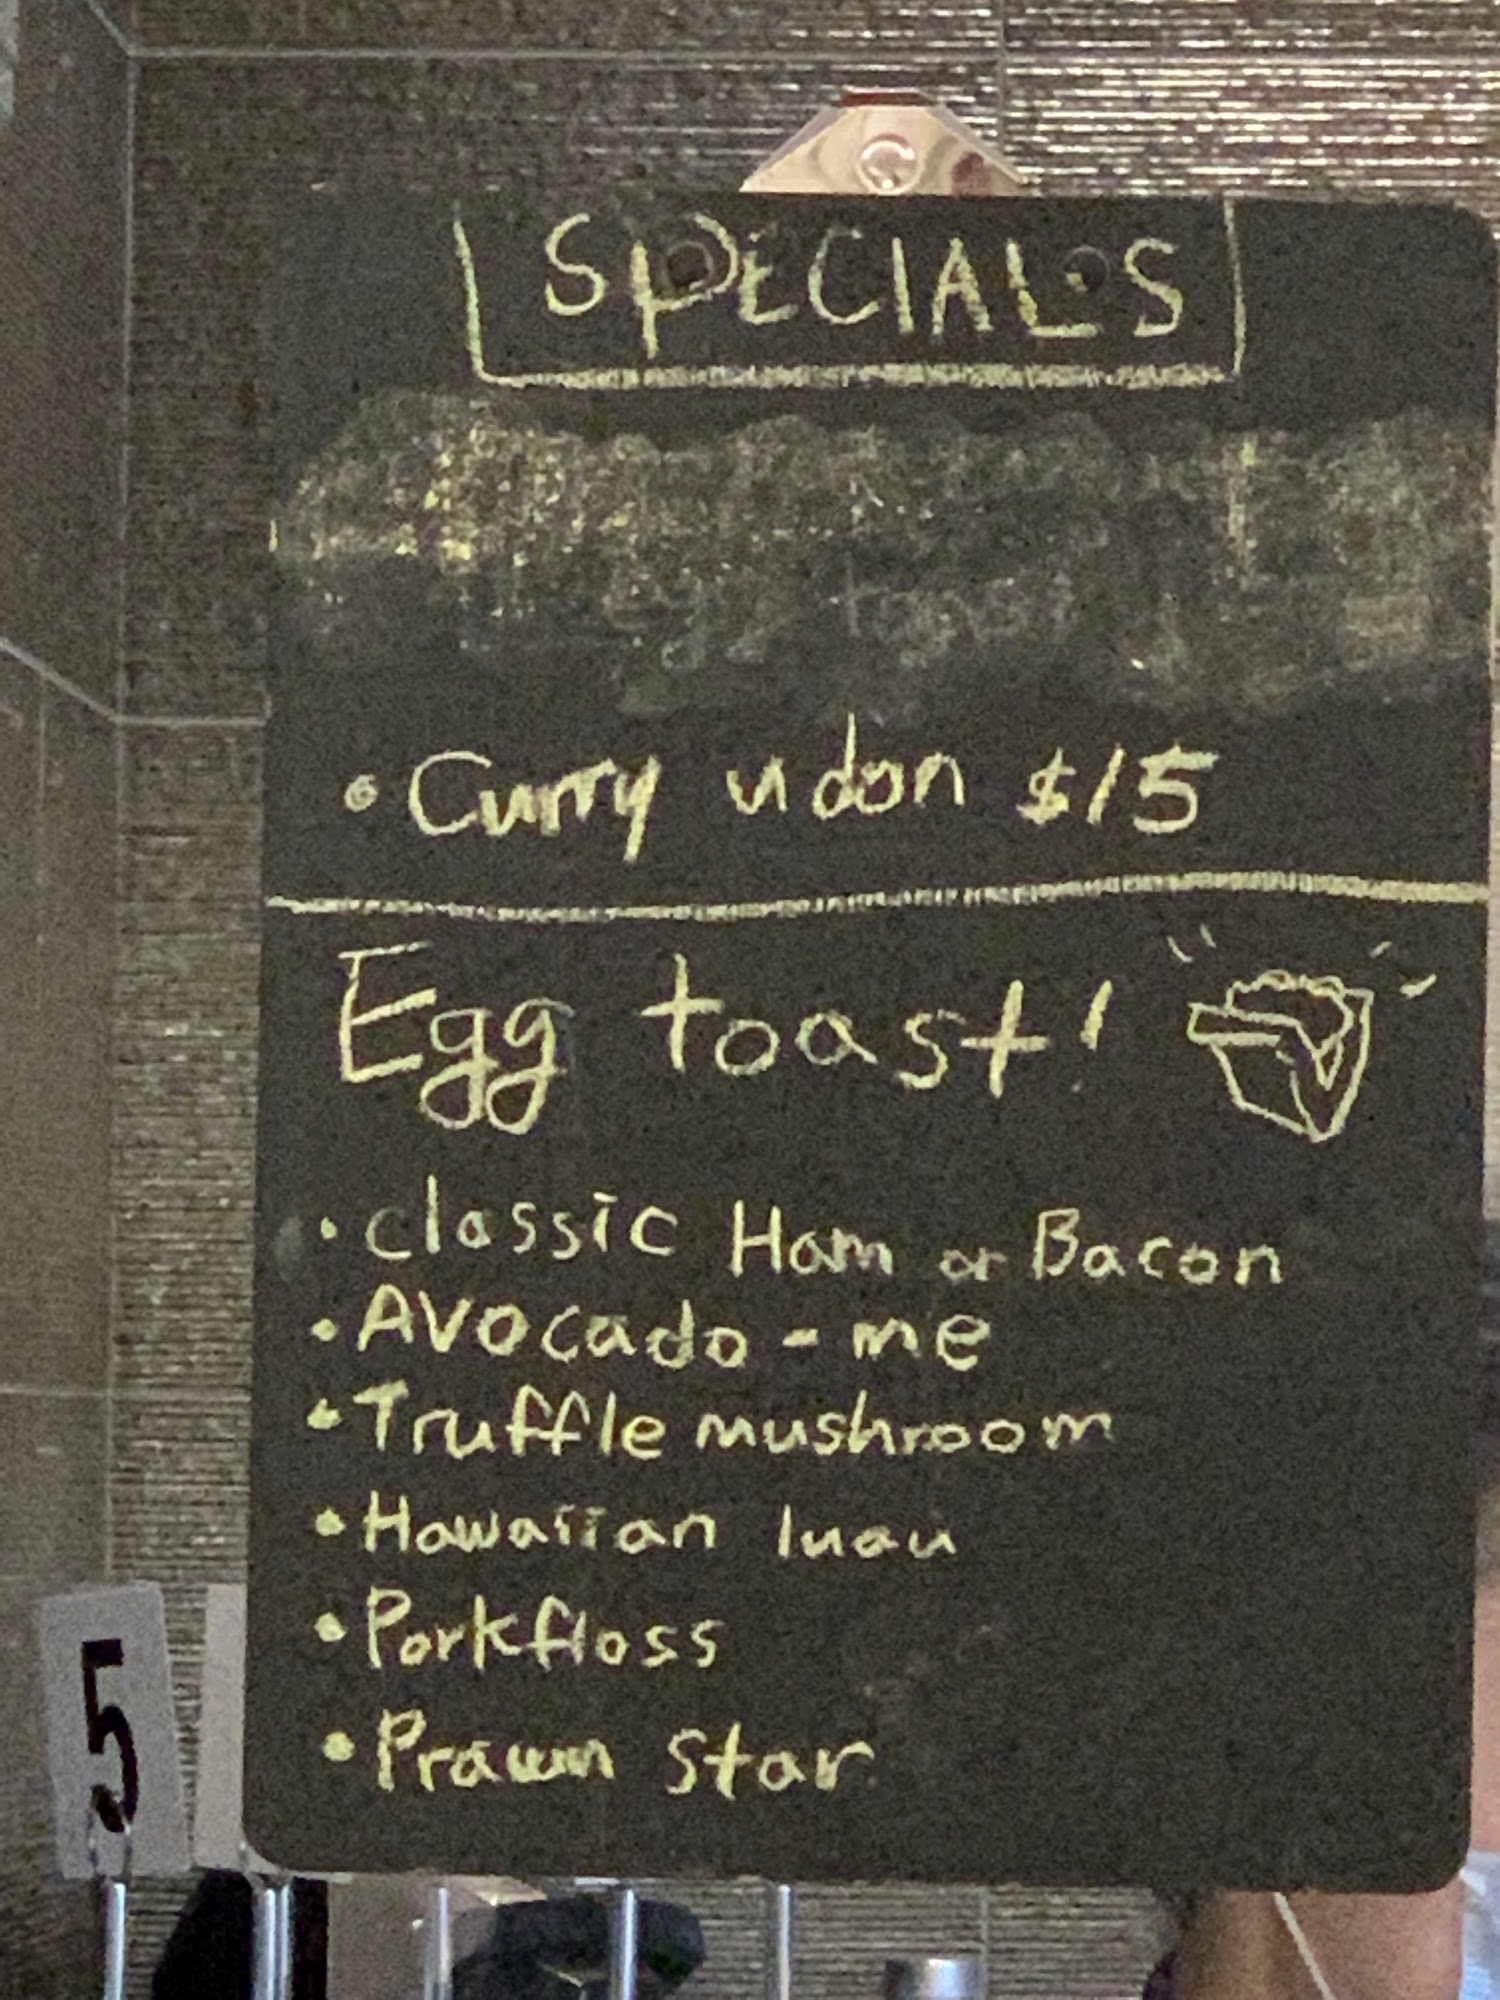 SPECIALS
• Curry udon $15
Egg toast!
• classic Ham or Bacon
• Avocado - me
• Truffle mushroom
• Hawaiian luau
• Porkfloss
• Prawn star
5